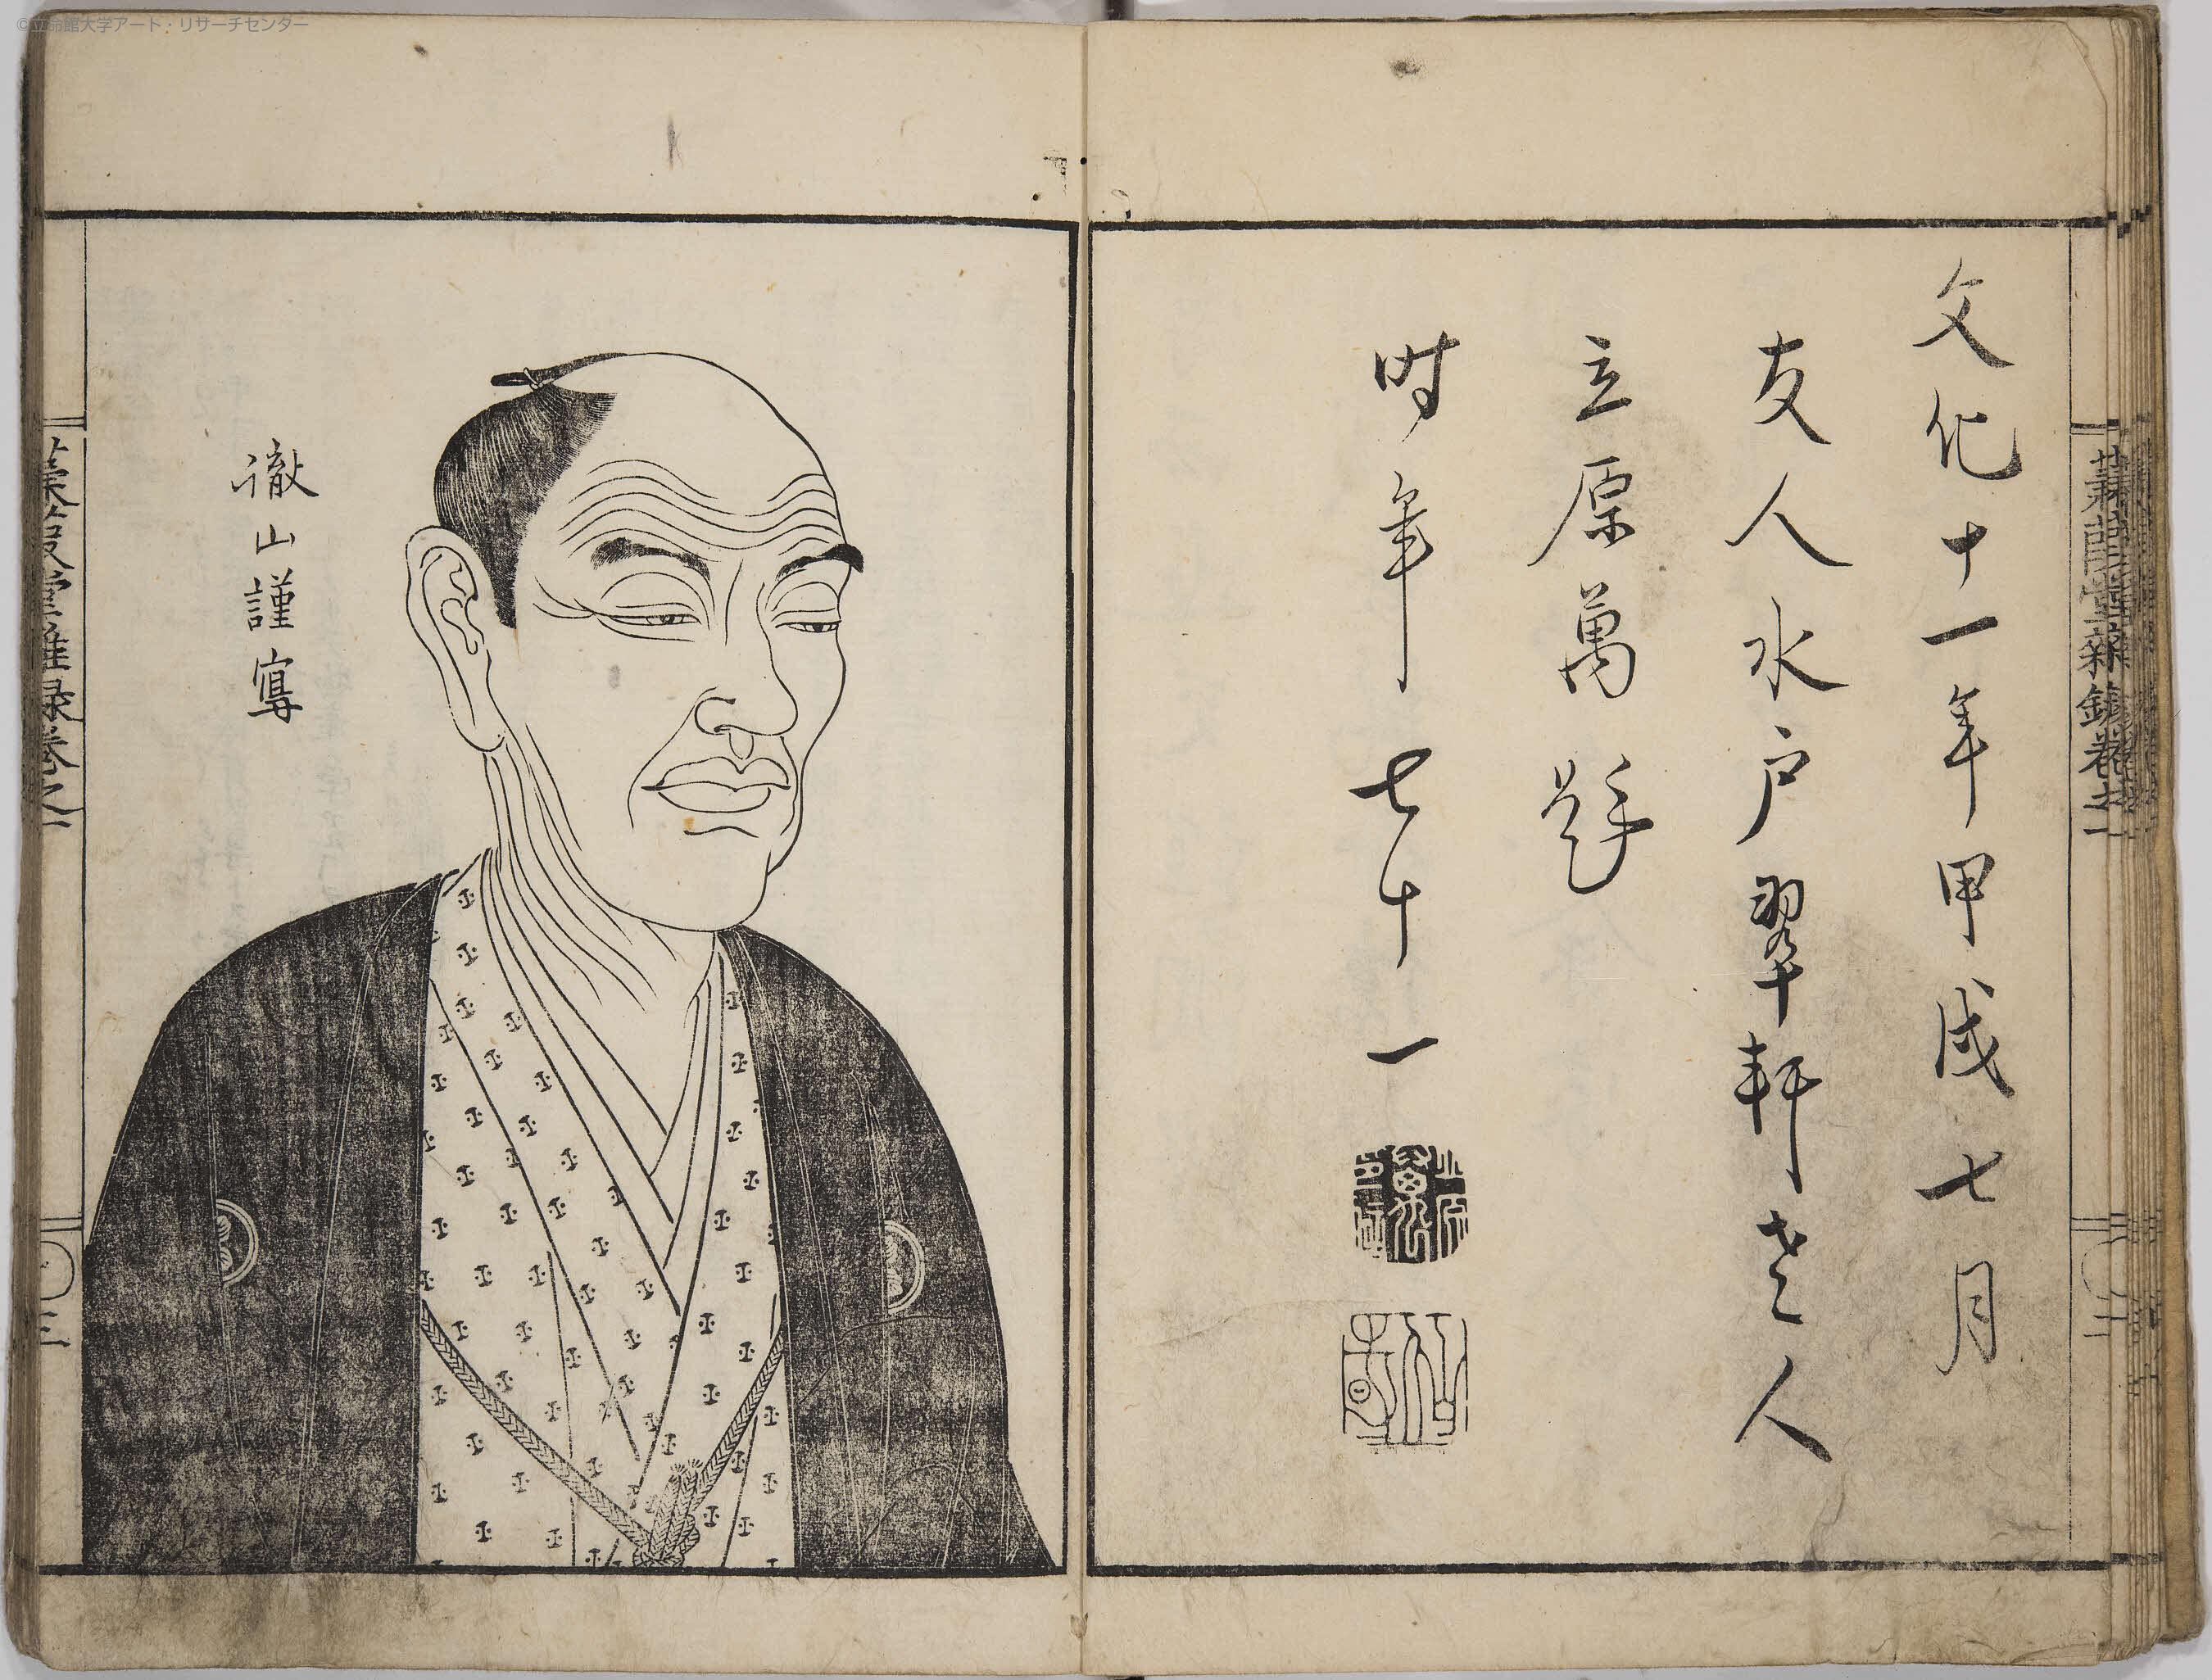 ©立命館大学アート・リサーチセンター
文化十一年甲戌七月
友人水戸翠軒老人
立原萬題
時年七十一
蒹葭堂雜錄卷之一
徹山謹寫
蒹葭堂雜録卷之一
三